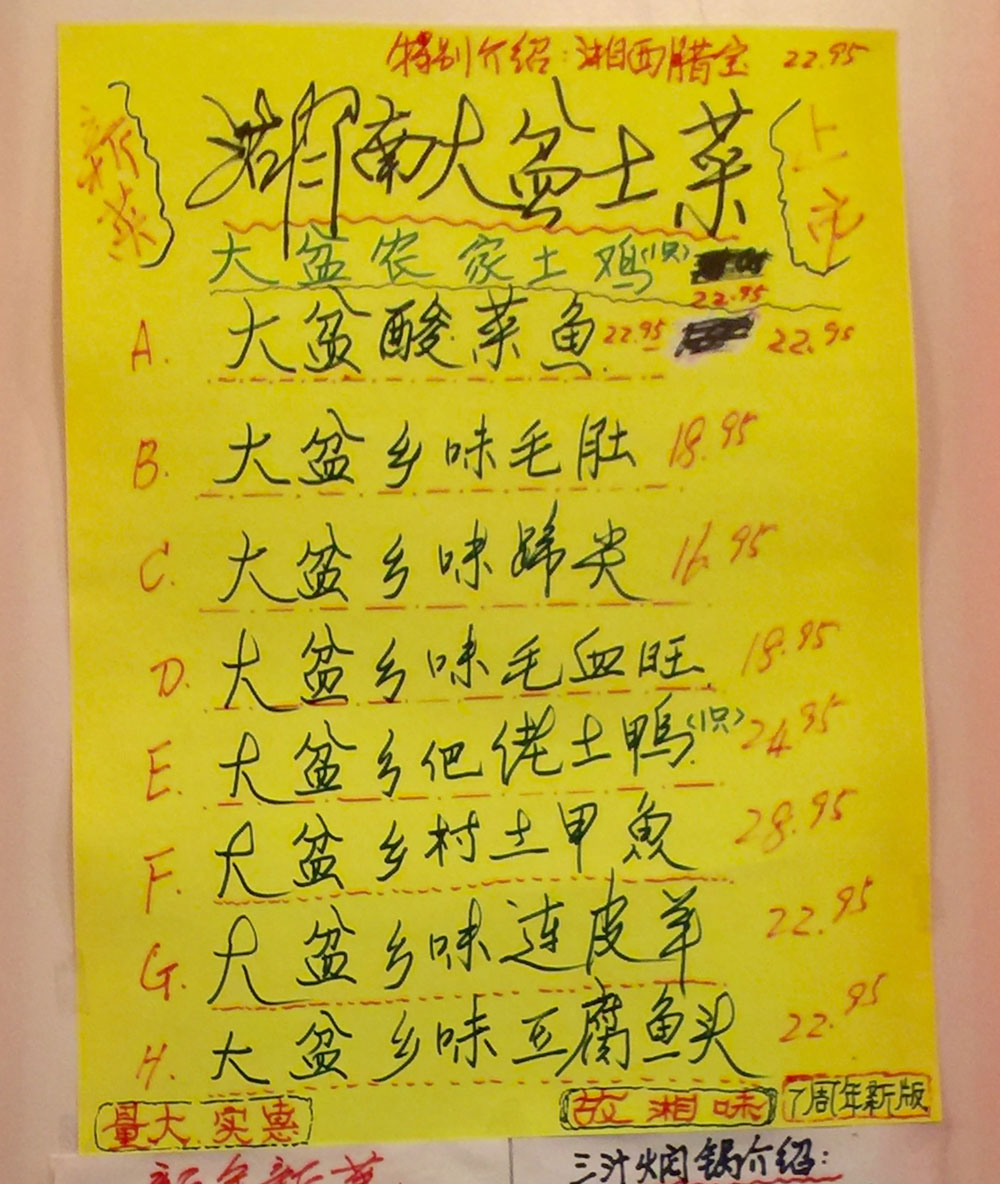 特别介绍:湘西腊宝 22.95
新菜
湖南大盆土菜
上市
大盆农家土鸡(1只)
22.95
A. 大盆酸菜鱼 22.95 22.95
B. 大盆乡味毛肚 18.95
C. 大盆乡味蹄尖 16.95
D. 大盆乡味毛血旺 18.95
E. 大盆乡巴佬土鸭(1只) 24.95
F. 大盆乡村土甲魚 28.95
G. 大盆乡味连皮羊 22.95
H. 大盆乡味豆腐鱼头 22.95
量大实惠
故湘味
7周年新版
新年新菜
三汁焖锅介绍: